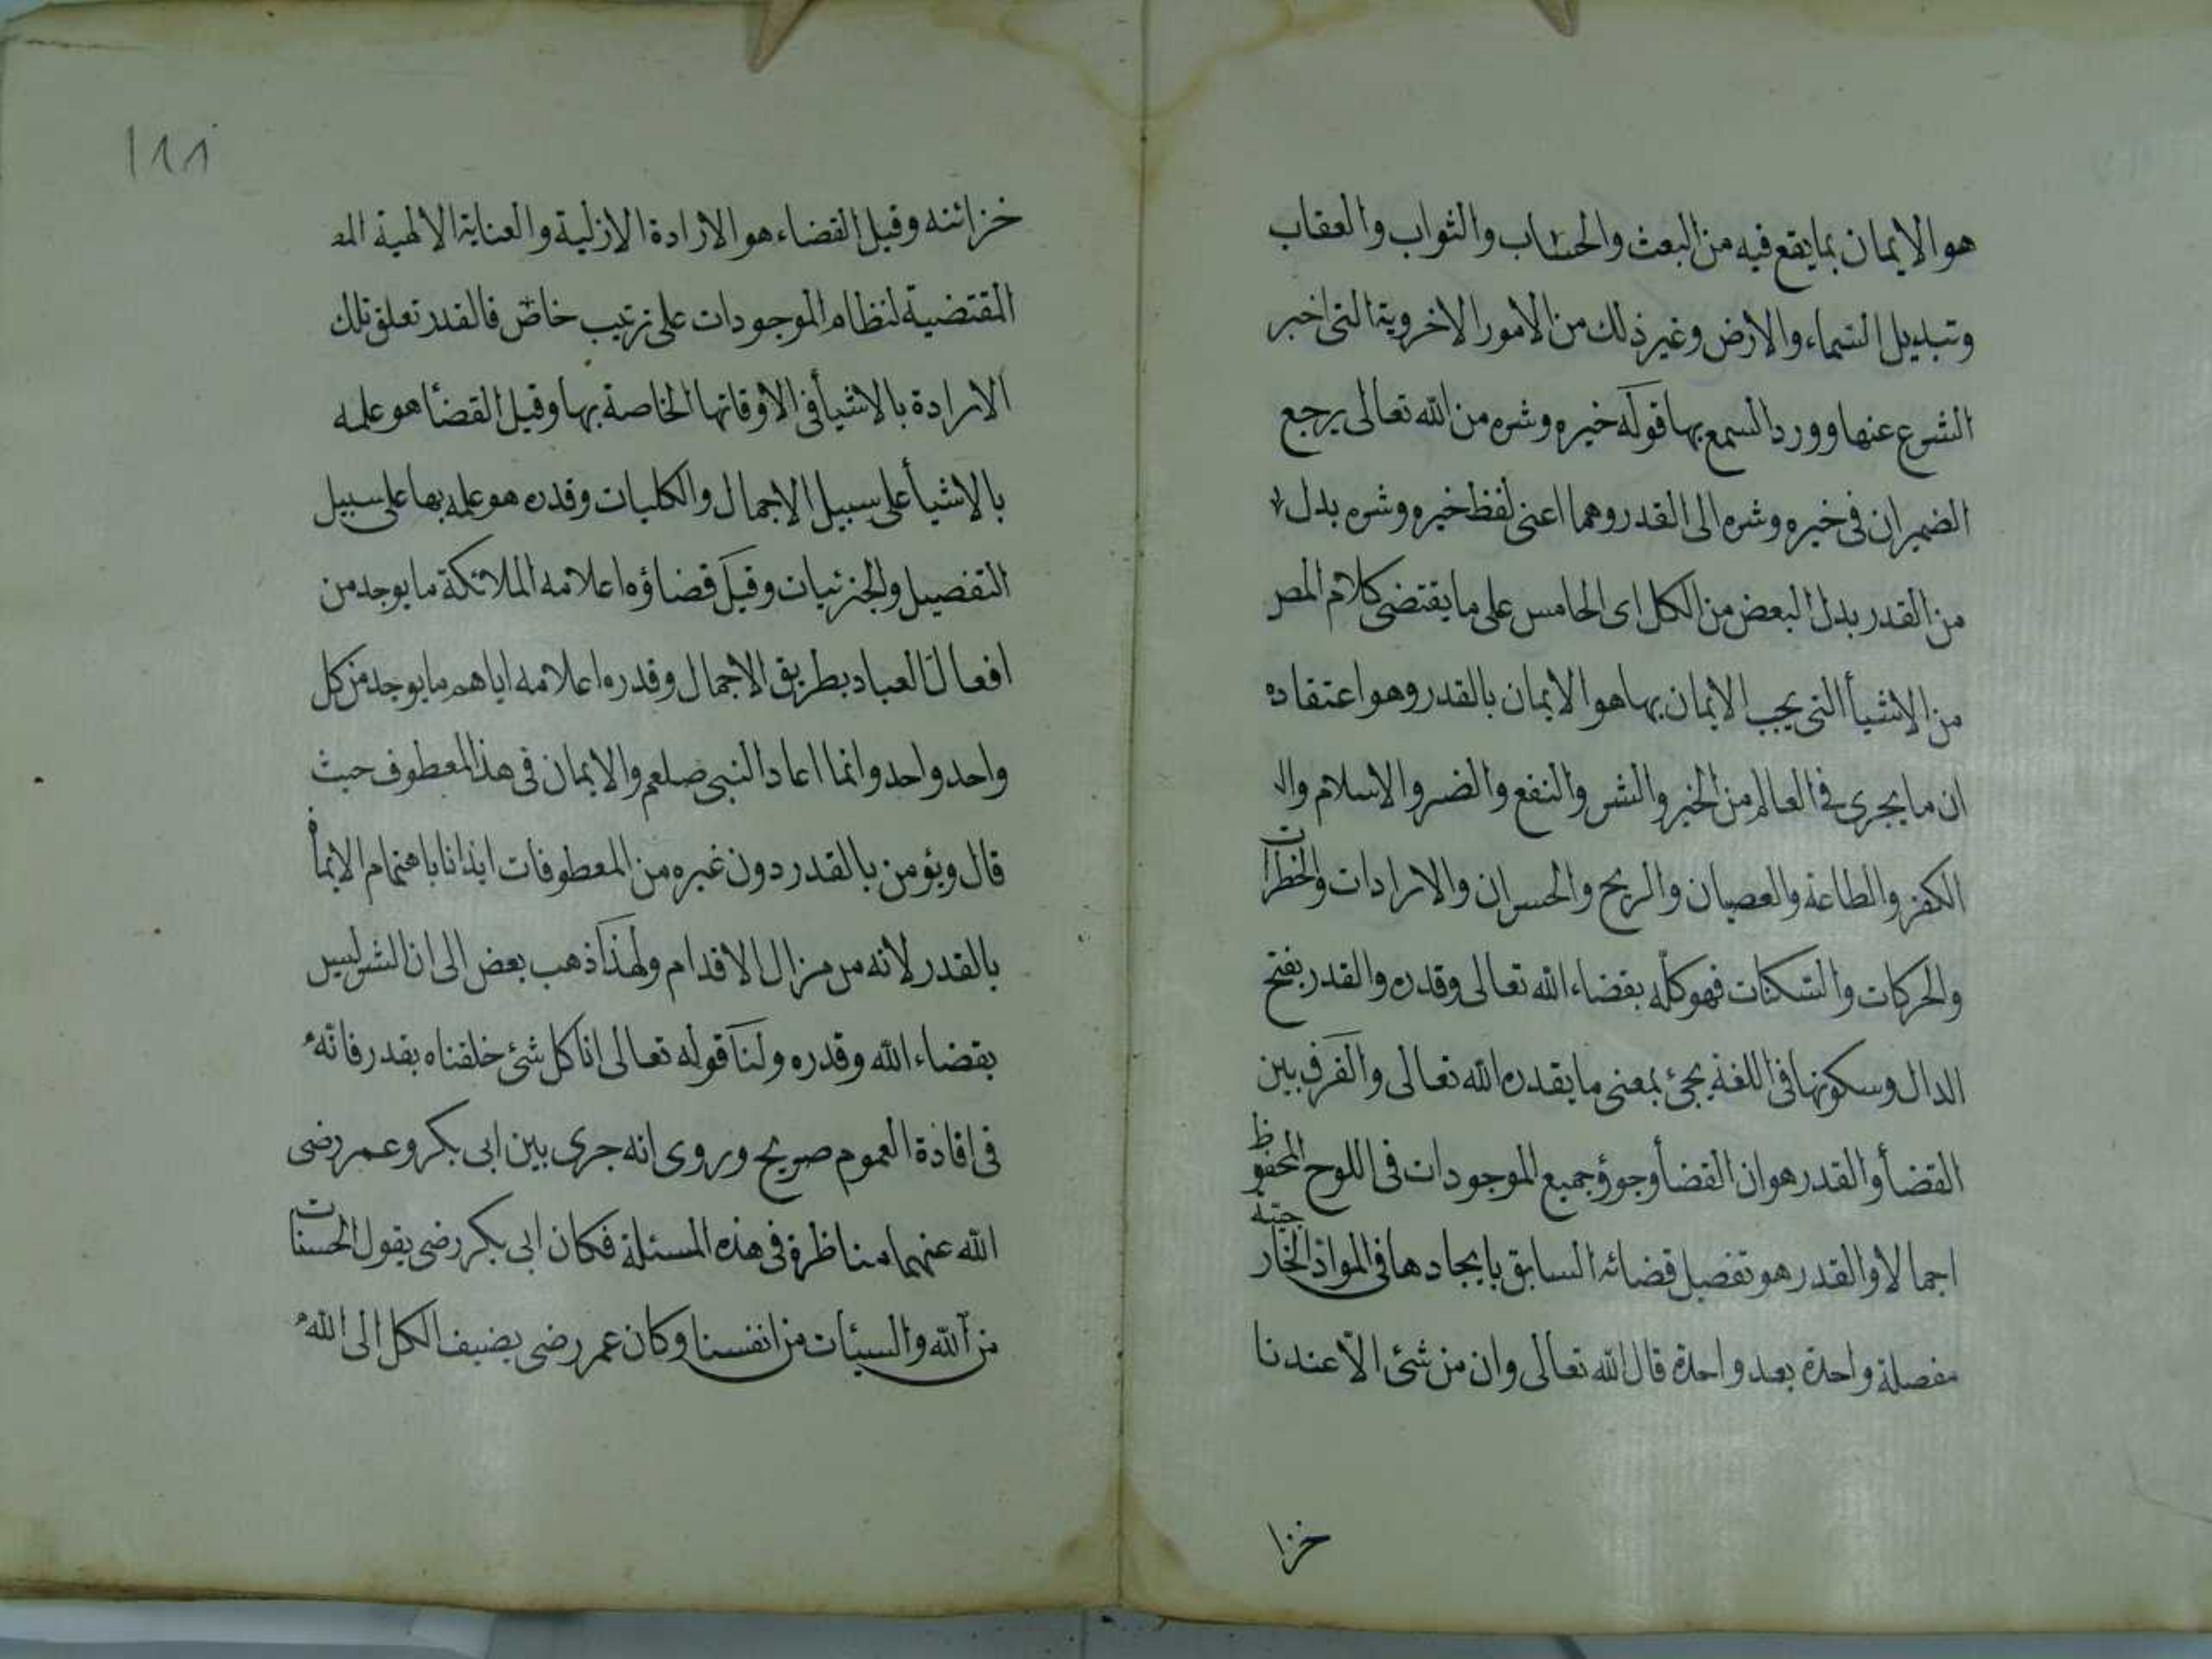 هو الايمان بما يقع فيه من البعث والحساب والثواب والعقاب
وتبديل السماء والارض وغير ذلك من الامور الاخروية التى اخبر
الشرع عنها وورد السمع بها قوله خيره وشره من الله تعالى يرجع
الضميران فى خيره وشره الى القدر وهما اعنى لفظ خيره وشره بدل
من القدر بدل البعض من الكل اى الخامس على ما يقتضى كلام المصر
من الاشيأ التى يجب الايمان بها هو الايمان بالقدر وهو اعتقاده
ان ما يجرى فى العالم من الخير والشر والنفع والضر والاسلام وال
الكفر والطاعة والعصيان والربح والخسران والارادات والخطرات
والحركات والسكنات فهو كله بقضاء الله تعالى وقدره والقدر بفتح
الدال وسكونها فى اللغة يجئ بمعنى ما يقدره الله تعالى والفرق بين
القضأ والقدر هو ان القضأ وجود جميع الموجودات فى اللوح المحفوظ
اجمالا والقدر هو تفصيل قضائه السابق بايجادها فى المواد الخارجية
مفصلة واحدة بعد واحدة قال الله تعالى وان من شئ الا عندنا
خزا
١٨٨
خزائنه وقيل القضاء هو الارادة الازلية والعناية الالهية الم
المقتضية لنظام الموجودات على ترتيب خاص فالقدر تعلق تلك
الارادة بالاشيأ فى الاوقاتها الخاصة بها وقيل القضأ هو علمه
بالاشيأ على سبيل الاجمال والكليات وقدره هو علمه بها على سبيل
التفصيل والجزئيات وقيل قضاؤه اعلامه الملائكة ما يوجد من
افعال العباد بطريق الاجمال وقدره اعلامه اياهم ما يوجد من كل
واحد واحد وانما اعاد النبى صلعم والايمان فى هذ المعطوف حيث
قال ويؤمن بالقدر دون غيره من المعطوفات ايذانا باهتمام الايمان
بالقدر لانه من مزال الاقدام ولهذا ذهب بعض الى ان الشر ليس
بقضاء الله وقدره ولنا قوله تعالى انا كل شئ خلقناه بقدر فانه
فى افادة العموم صريح وروى انه جرى بين ابى بكر وعمر رضى
الله عنهما مناظرة فى هذه المسئلة فكان ابى بكر رضى يقول الحسنات
من الله والسيئات من انفسنا وكان عمر رضى يضيف الكل الى الله